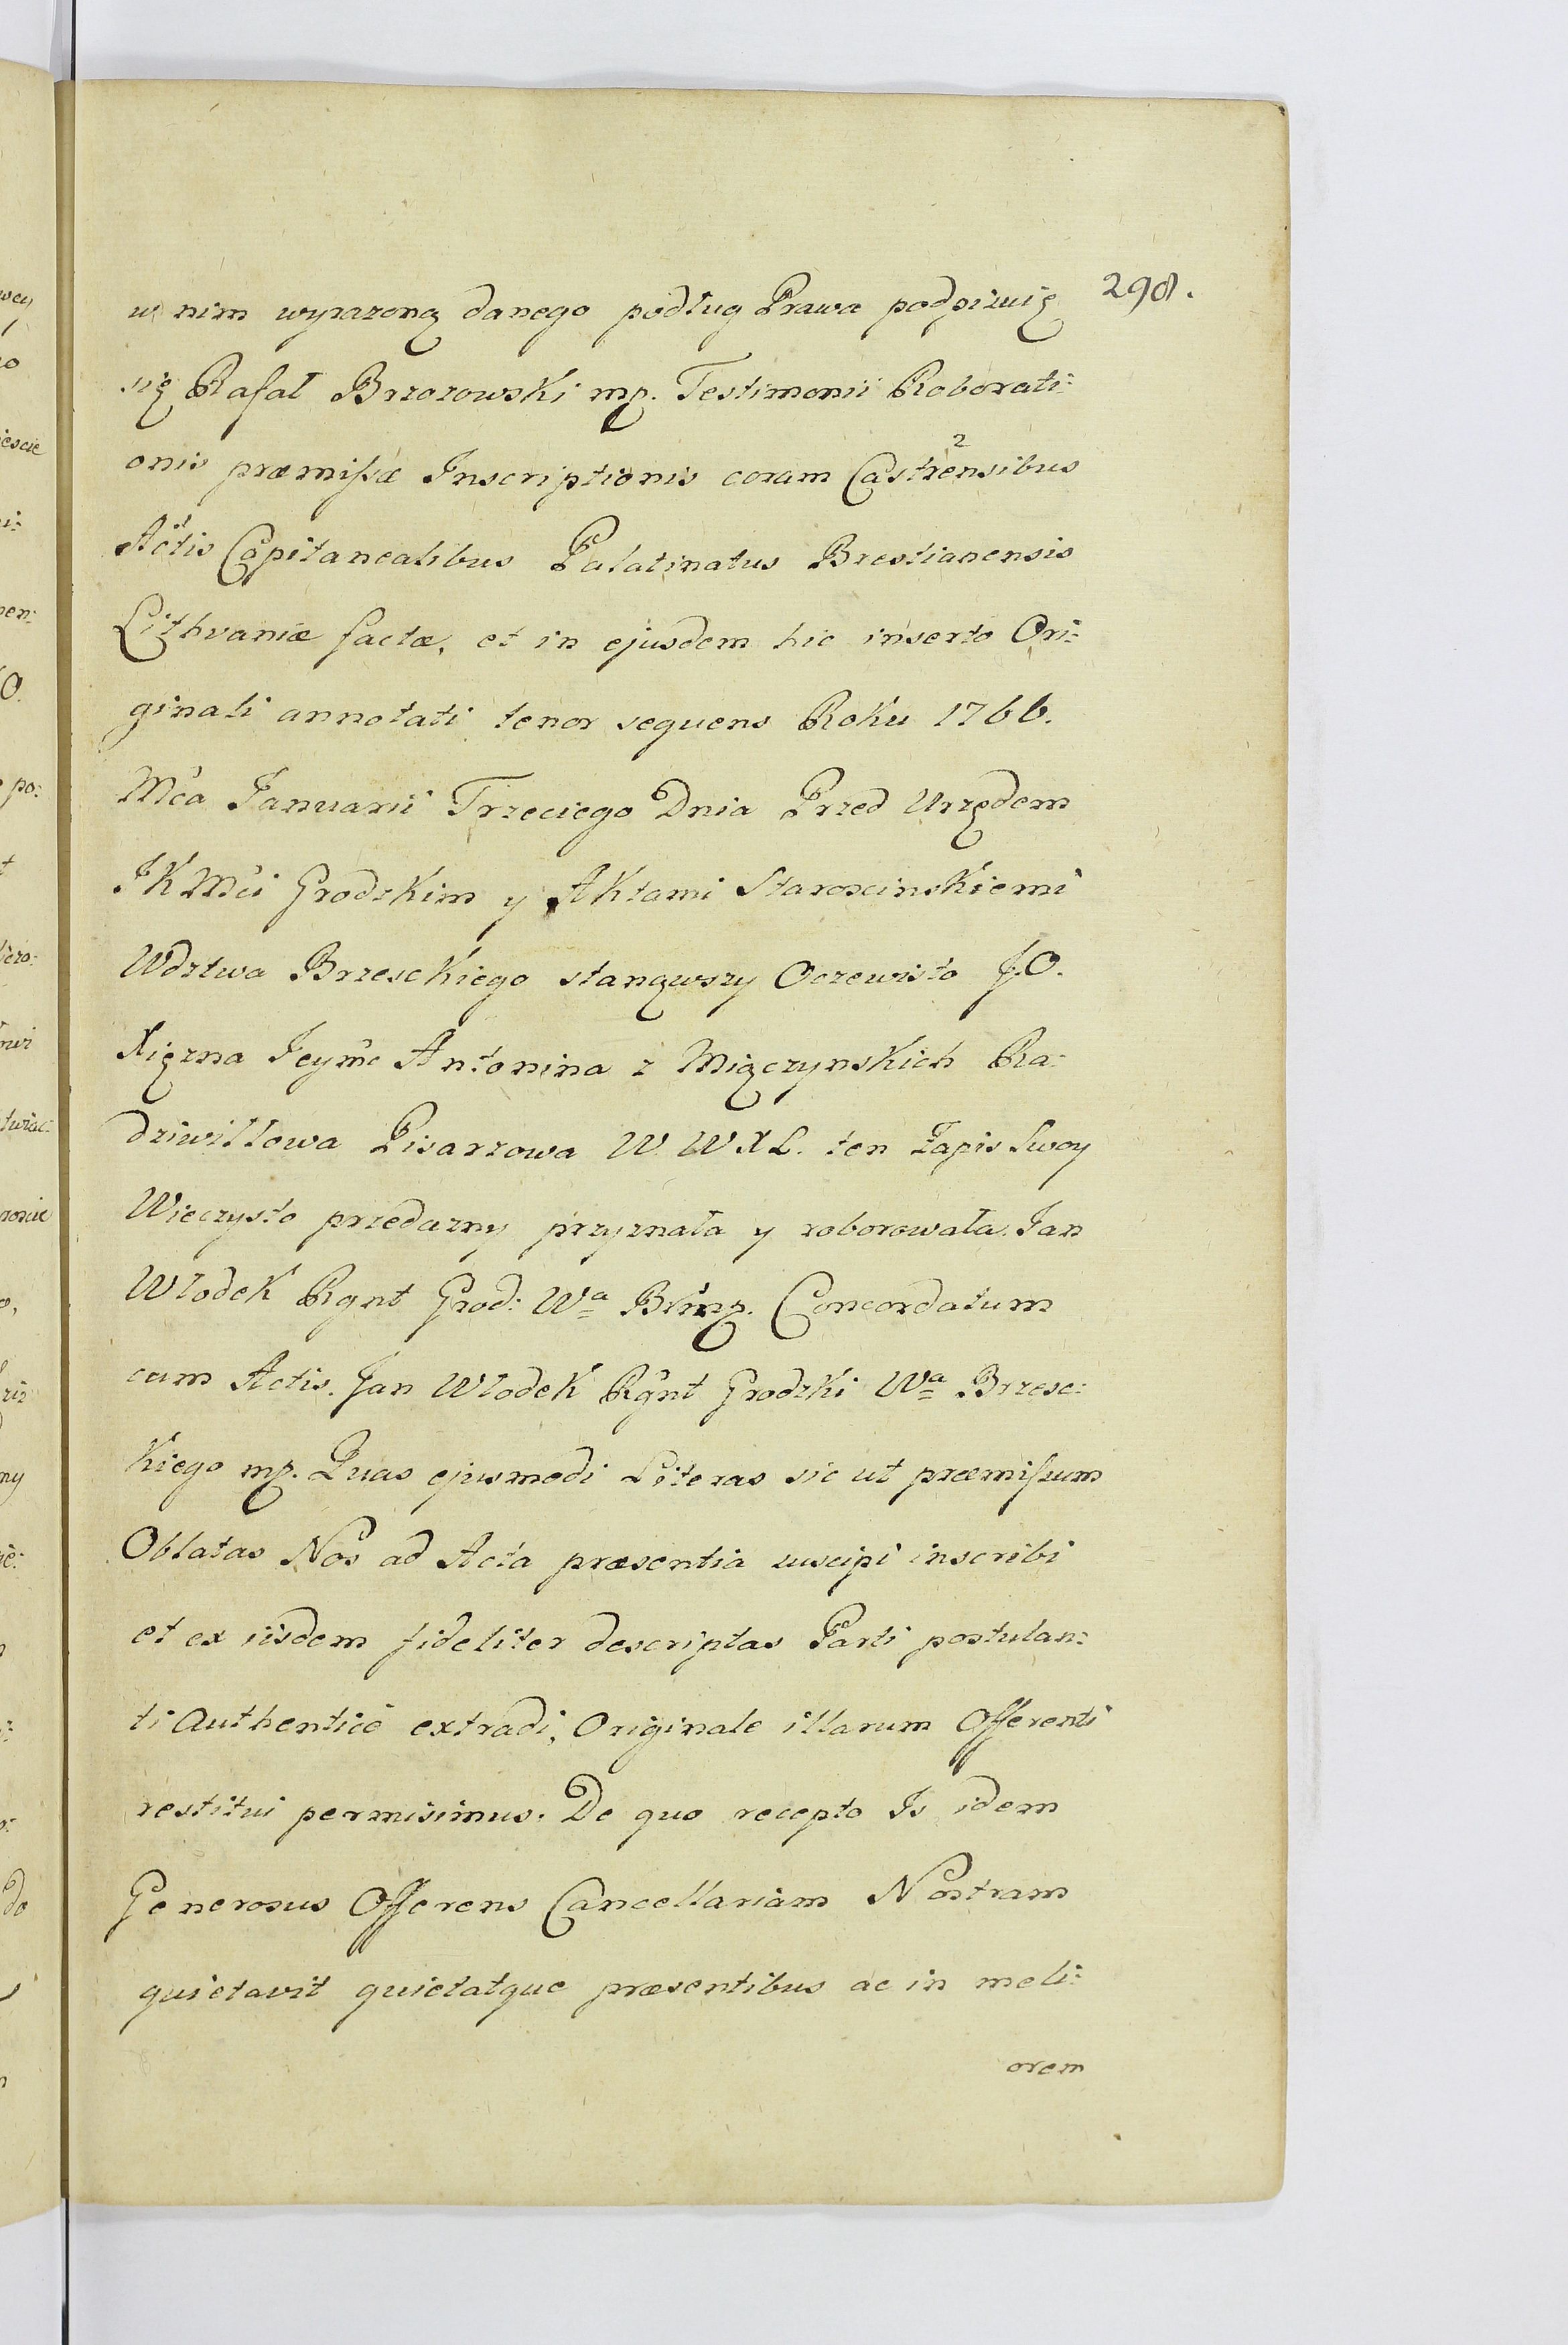 298.
w nim wyrazoną danego podług Prawa podpisuię
się Rafał Brzozowski mp. Testimonii Roborati:
onis præmissæ Inscriptionis coram Castrensibus
Actis Capitanealibus Palatinatus Brestianensis
Lithvaniæ factæ, et in ejusdem hic inserto Ori:
ginali annotati tenor sequens Roku 1766.
Mca Januarii Trzeciego Dnia Przed Urzędem
JKMci Grodzkim y Aktami Staroscinskiemi
Wdztwa Brzesckiego stanąwszy Oczewisto J.O.
Xięzna Jeymc Antonina z Miączynskich Ra:
dziwiłłowa Pisarzowa W W X L. ten Zapis Swoy
Wieczysto przedazny przyznała y roborowała. Jan
Włodek Rgnt Grod: Wa Brmp. Concordatum
cum Actis. Jan Włodek Rgnt Grodzki Wa Brzesc:
kiego mp. Quas ejusmodi Literas sic ut præmissum
Oblatas Nos ad Acta præsentia suscipi inscribi
et ex iisdem fideliter descriptas Parti postulan:
ti Authenticè extradi, Originale illarum Offerenti
restitui permisimus. De quo recepto Is idem
Generosus Offerens Cancellariam Nostram
quietavit quietatque præsentibus ac in meli:
orem